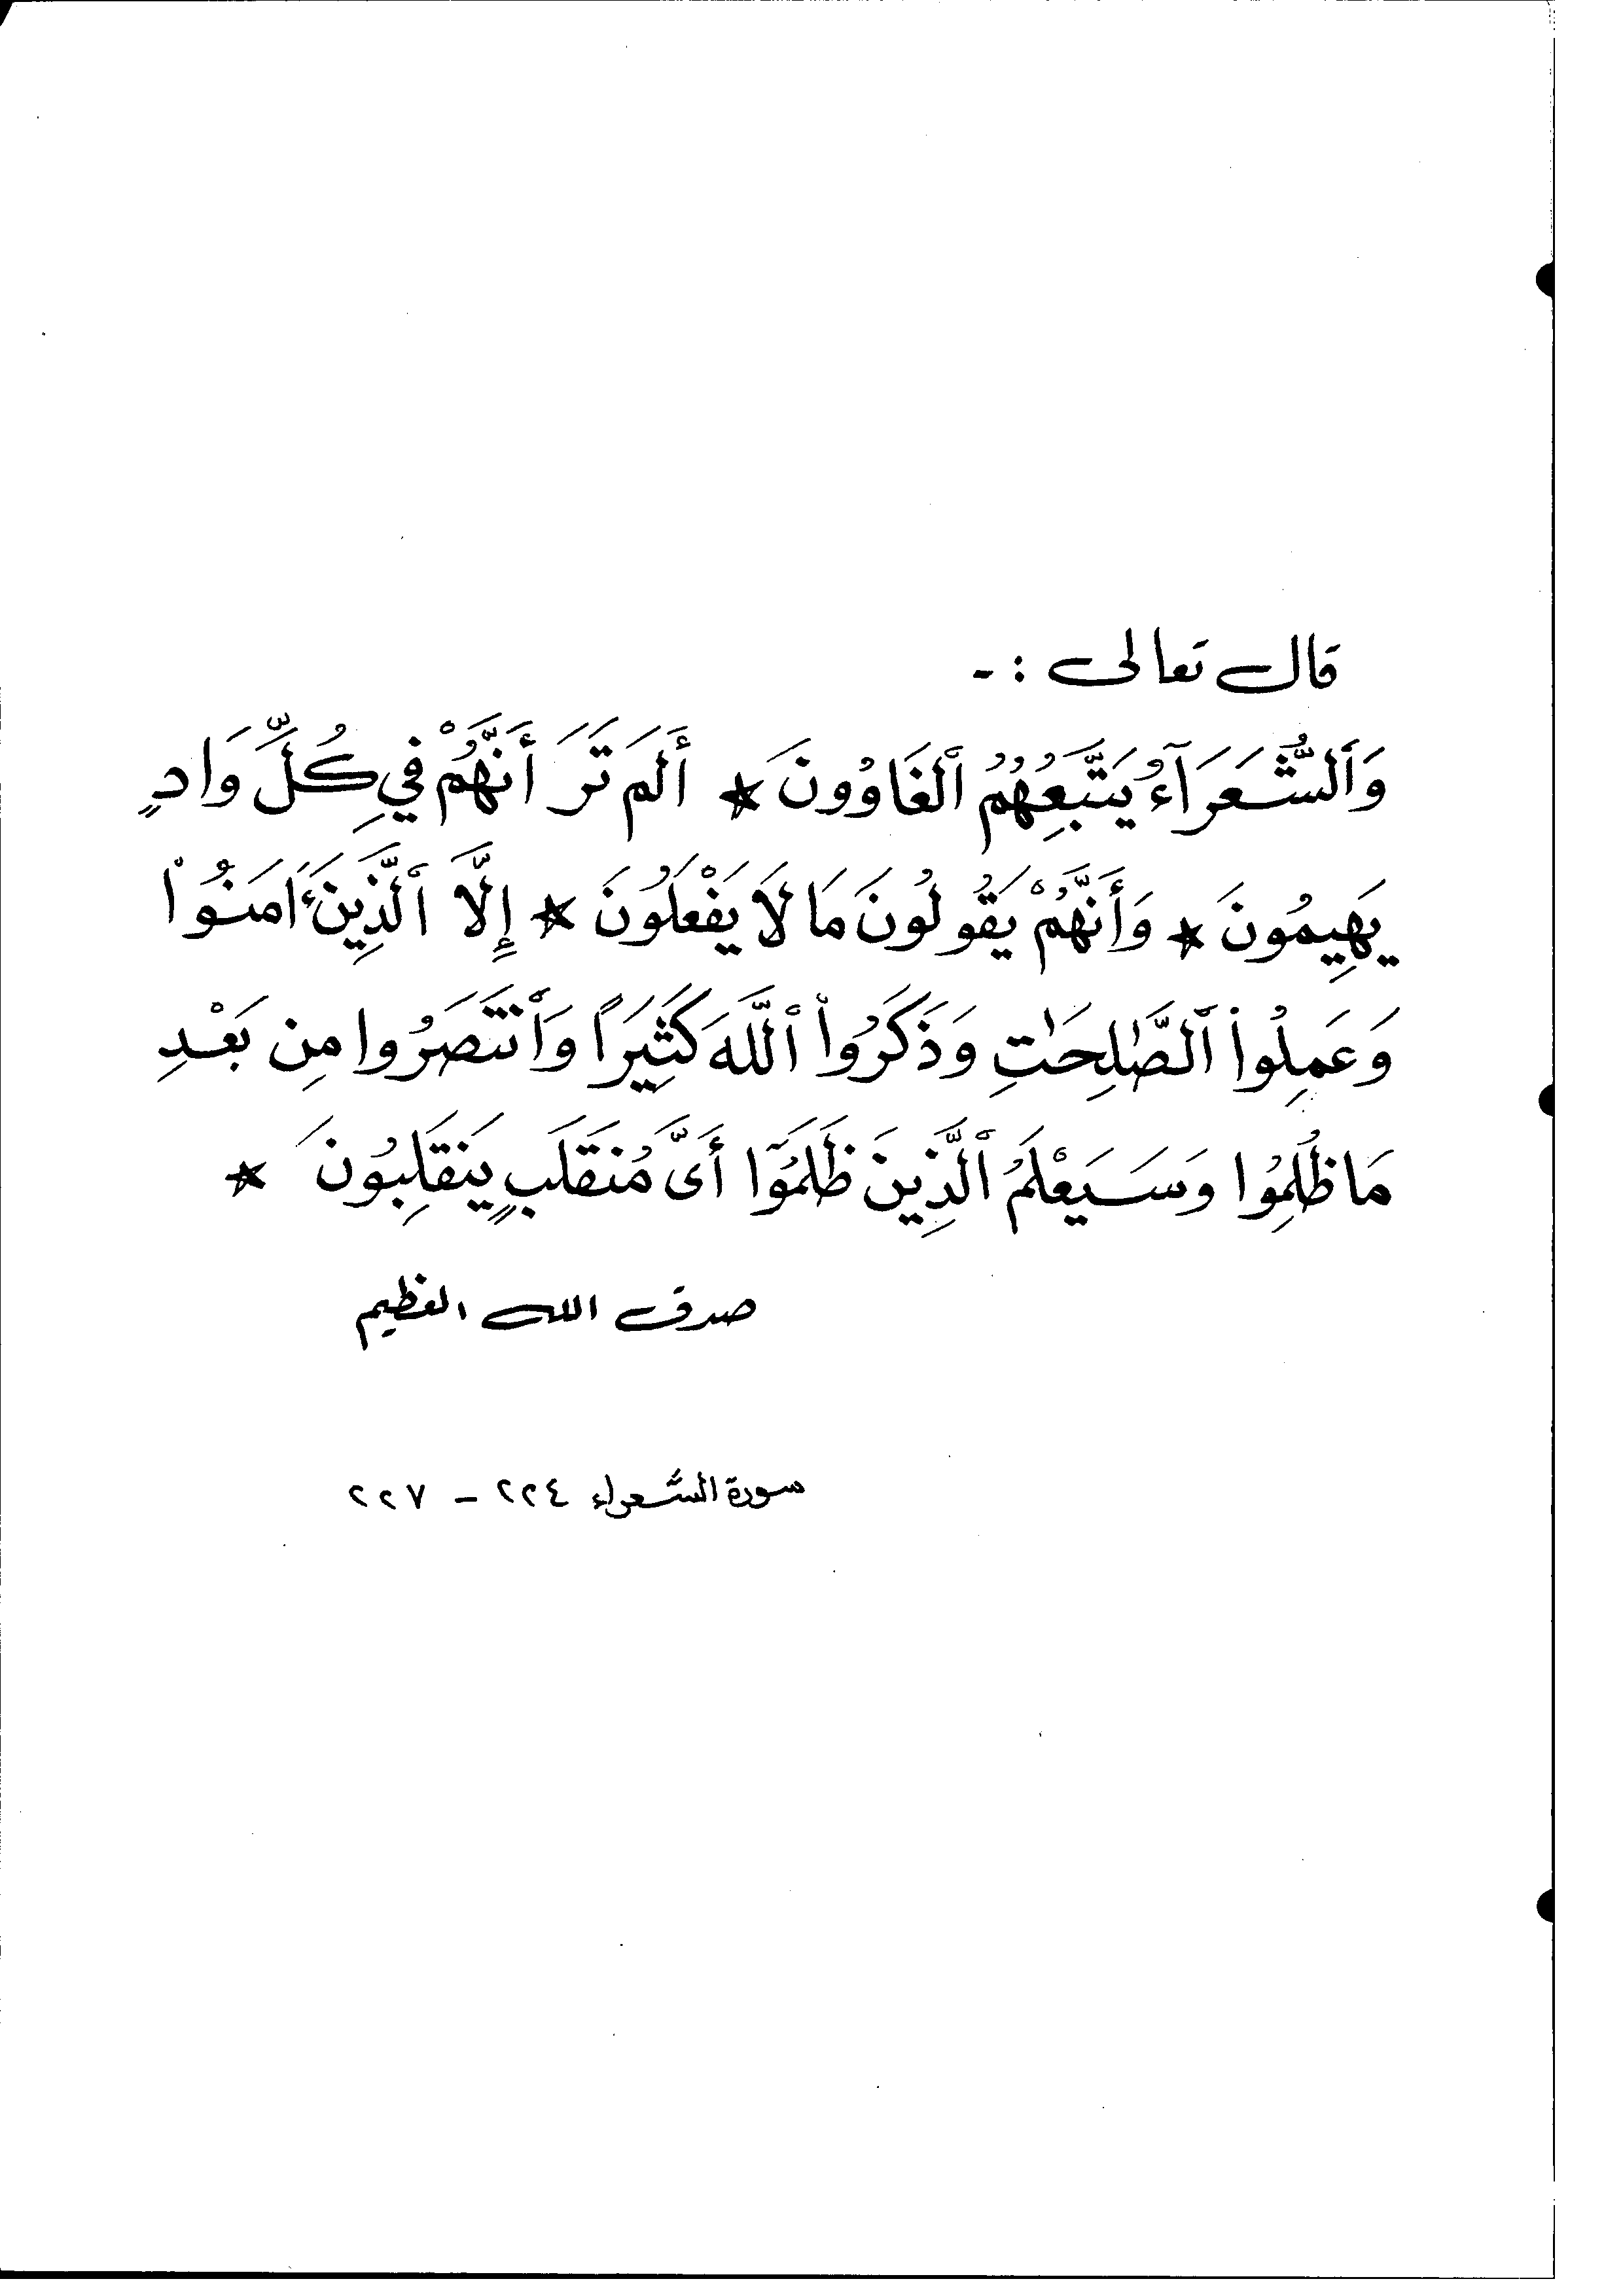 قال تعالى :-
وَٱلشُّعَرَآءُ يَتَّبِعُهُمُ ٱلْغَاوُونَ * أَلَم تَرَ أَنَّهُمْ فِي كُلِّ وَادٍ
يَهِيمُونَ * وَأَنَّهُمْ يَقُولُونَ مَا لَا يَفْعَلُونَ * إِلَّا ٱلَّذِينَ ءَامَنُوا۟
وَعَمِلُوا۟ ٱلصَّٰلِحَٰتِ وَذَكَرُوا۟ ٱللَّهَ كَثِيَرًا وَٱنتَصَرُوا مِن بَعْدِ
مَا ظُلِمُوا وَسَيَعْلَمُ ٱلَّذِينَ ظَلَمُوٓا أَىَّ مُنقَلَبٍ يَنقَلِبُونَ *
صدق الله العظيم
سورة الشعراء ٢٢٤ - ٢٢٧